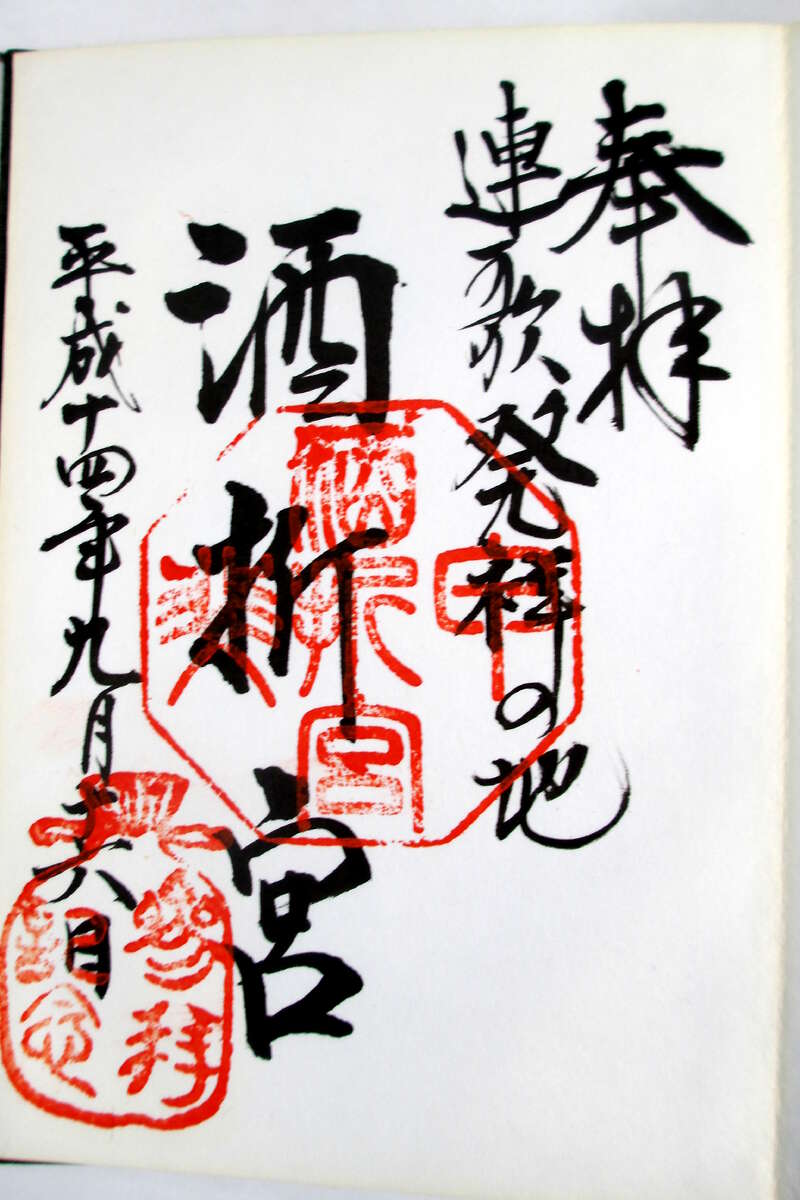 奉拝
連歌発祥の地
酒折宮
平成十四年九月十六日
参拝
記念